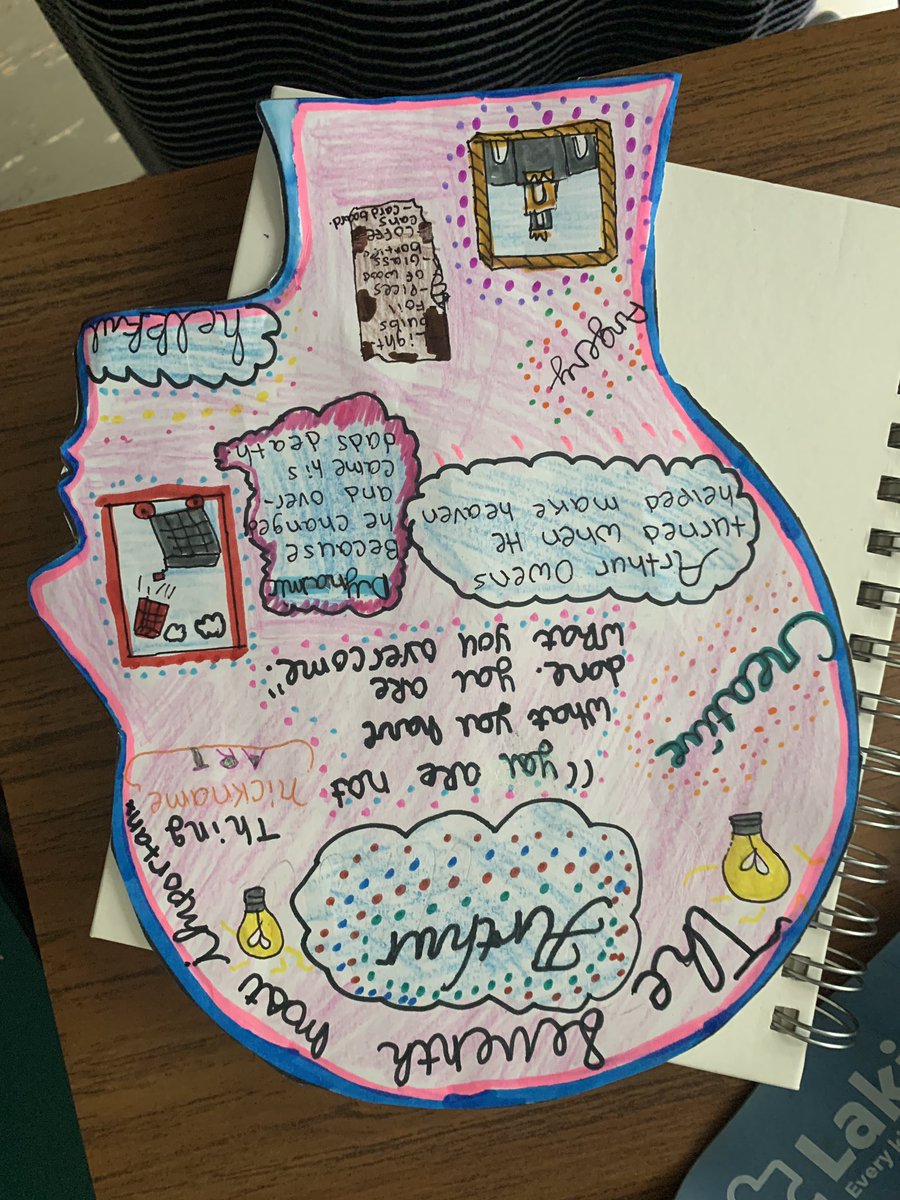 The
Seventh
most
importan
Thing
Arthur
nickname
ART
"you are not
what you have
done. you are
what you overcome."
Creative
Arthur Owens
turned when He
helped make heaven
Dynamic
Because
he changed
and over-
came his
dads death
Angery
helpful
-light
bulbs
Foil
-Pices
of wood
-Glass
bottles
-coffee
cans
-card board.
Laki
Every